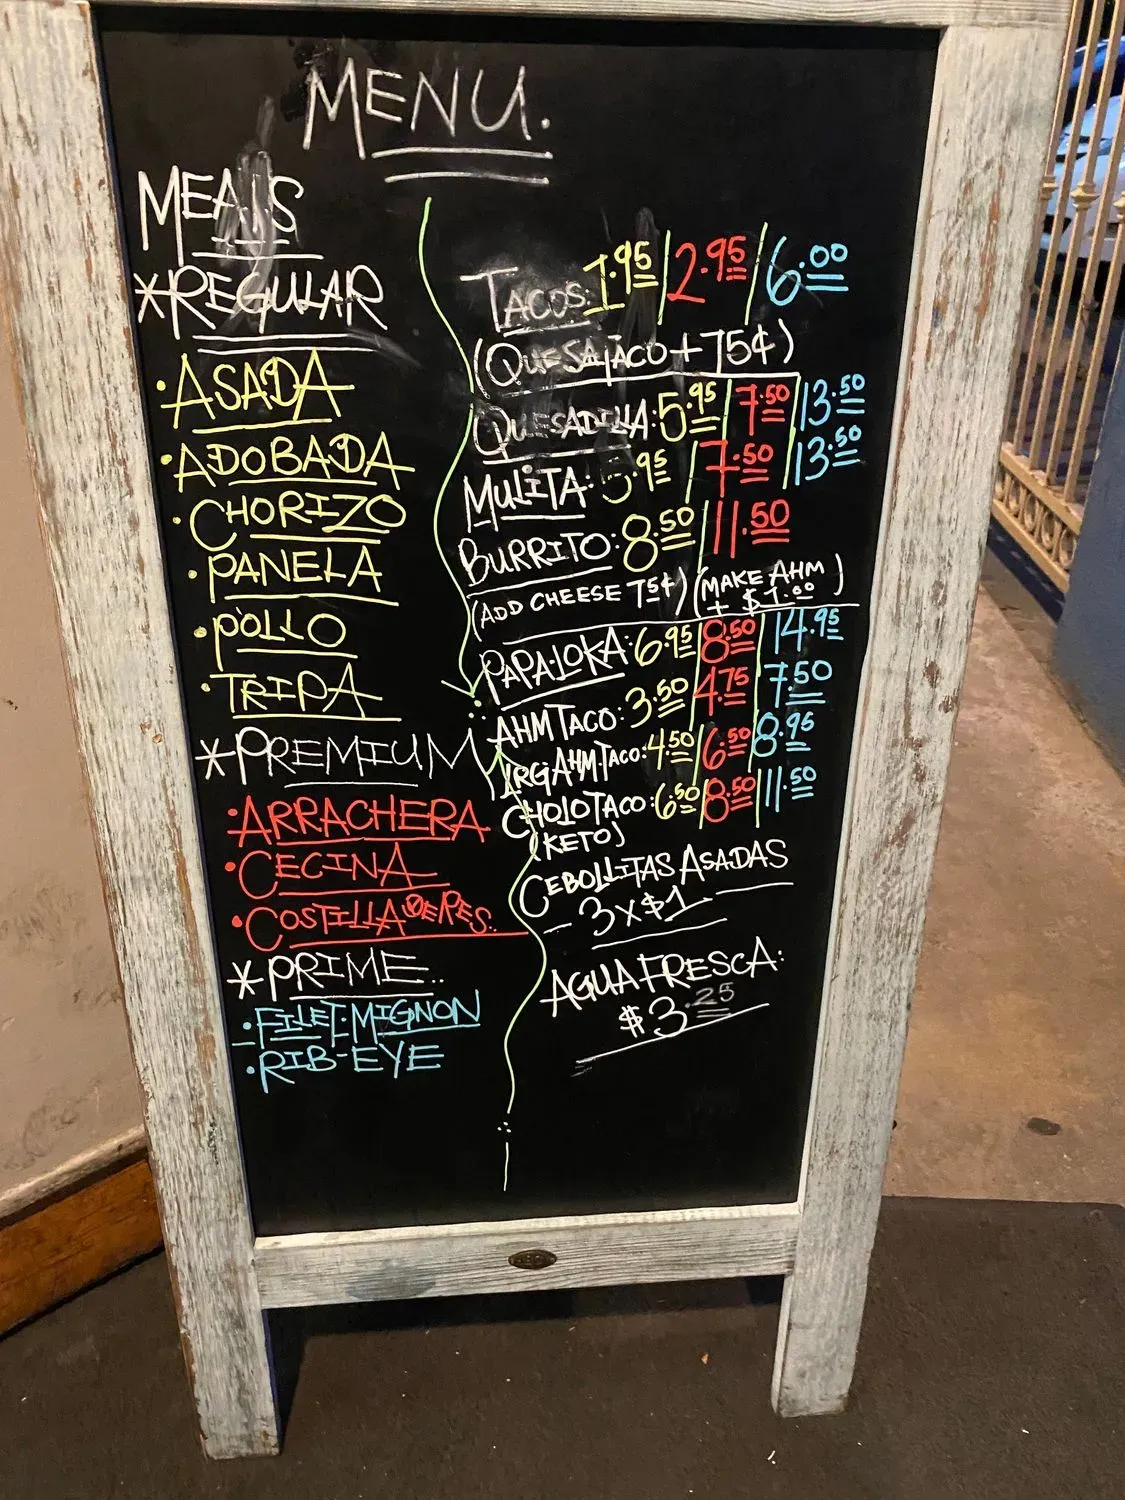 MENU.
MEATS
*REGULAR
·ASADA
·ADOBADA
·CHORIZO
·PANELA
·POLLO
·TRIPA
*PREMIUM
·ARRACHERA
·CECINA
·COSTILLA DE RES..
*PRIME..
·FILET·MIGNON
·RIB-EYE
TACOS: 1.95 | 2.95 | 6.00
(QUESATACO + 75¢)
QUESADILLA: 5.95 | 7.50 | 13.50
MULITA: 5.95 | 7.50 | 13.50
BURRITO: 8.50 | 11.50
(ADD CHEESE 75¢) (MAKE AHM + $1.00)
PAPA·LOKA: 6.95 | 8.50 | 14.95
AHM TACO: 3.50 | 4.75 | 7.50
ARG AHM.TACO: 4.50 | 6.50 | 8.95
CHOLO TACO: 6.50 | 8.50 | 11.50
(KETO)
CEBOLLITAS ASADAS
- 3 X $1
AGUA FRESCA:
$3.25